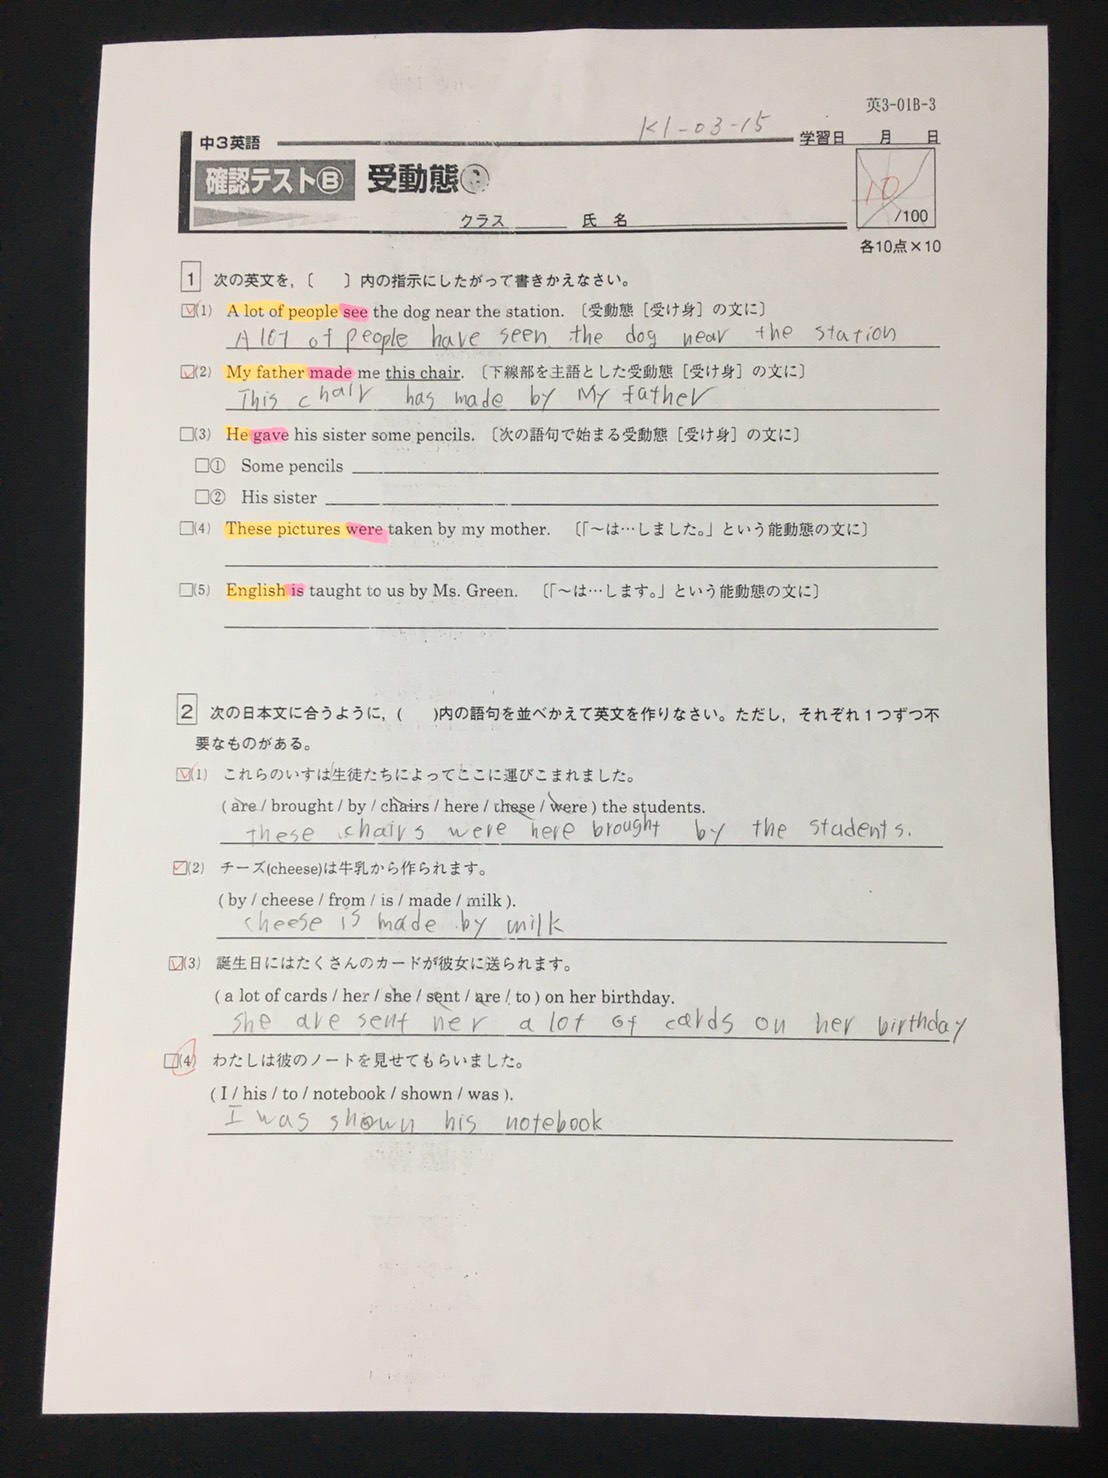 英3-01B-3
K1-03-15
中3英語
学習日 月 日
確認テストⒷ 受動態
10
/100
クラス 氏名
各10点×10
1 次の英文を,〔 〕内の指示にしたがって書きかえなさい。
(1) A lot of people see the dog near the station. 〔受動態［受け身］の文に〕
A lot of people have seen the dog near the station
(2) My father made me this chair. 〔下線部を主語とした受動態［受け身］の文に〕
This chair has made by My father
(3) He gave his sister some pencils. 〔次の語句で始まる受動態［受け身］の文に〕
① Some pencils
② His sister
(4) These pictures were taken by my mother. 〔「～は…しました。」という能動態の文に〕
(5) English is taught to us by Ms. Green. 〔「～は…します。」という能動態の文に〕
2 次の日本文に合うように,( )内の語句を並べかえて英文を作りなさい。ただし,それぞれ1つずつ不
要なものがある。
(1) これらのいすは生徒たちによってここに運びこまれました。
( are / brought / by / chairs / here / these / were ) the students.
these chairs were here brought by the students.
(2) チーズ(cheese)は牛乳から作られます。
( by / cheese / from / is / made / milk ).
cheese is made by milk
(3) 誕生日にはたくさんのカードが彼女に送られます。
( a lot of cards / her / she / sent / are / to ) on her birthday.
she are sent her a lot of cards on her birthday
(4) わたしは彼のノートを見せてもらいました。
( I / his / to / notebook / shown / was ).
I was shown his notebook